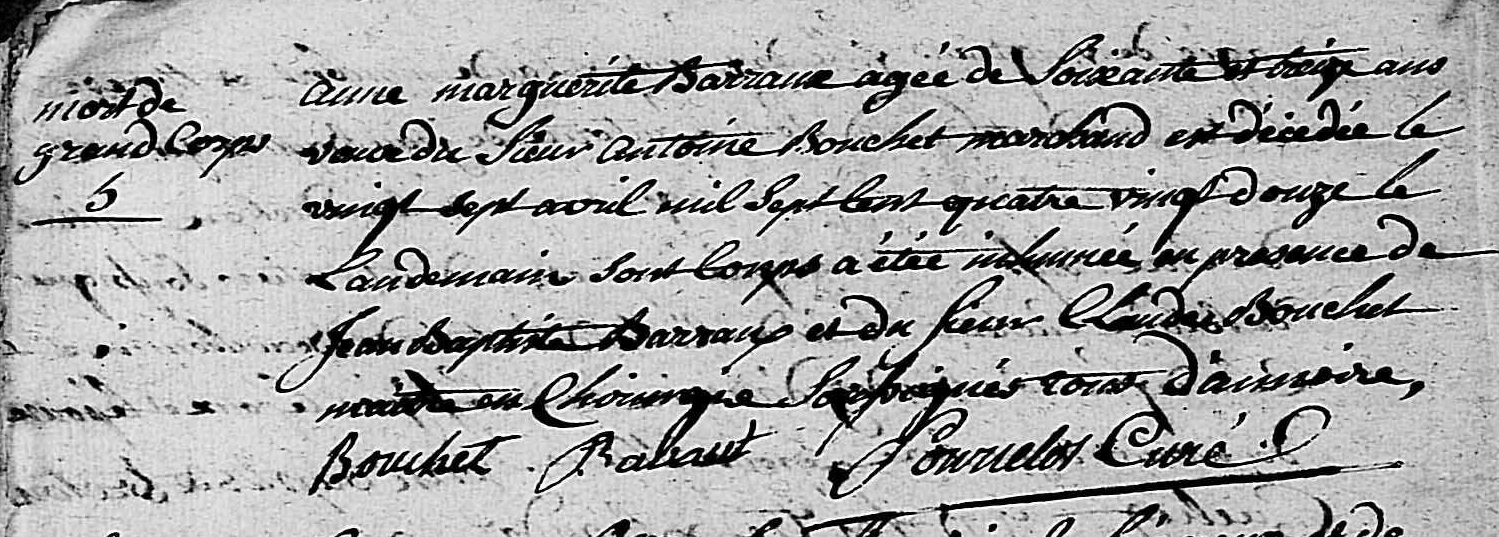 mort de
grand Corps
5
anne marguerite Barraux agée de Soixante et treize ans
veuve du Sieur antoine Bouchet marchand est décédée le
vingt sept avril mil Sept Cent quatre vingt douze le
Landemain Sont Corps a étée inhumée en presence de
Jean Baptiste Barraux et du Sieur Claude Bouchet
maitre en Chirurgie Soussignés tous
Bouchet Curé